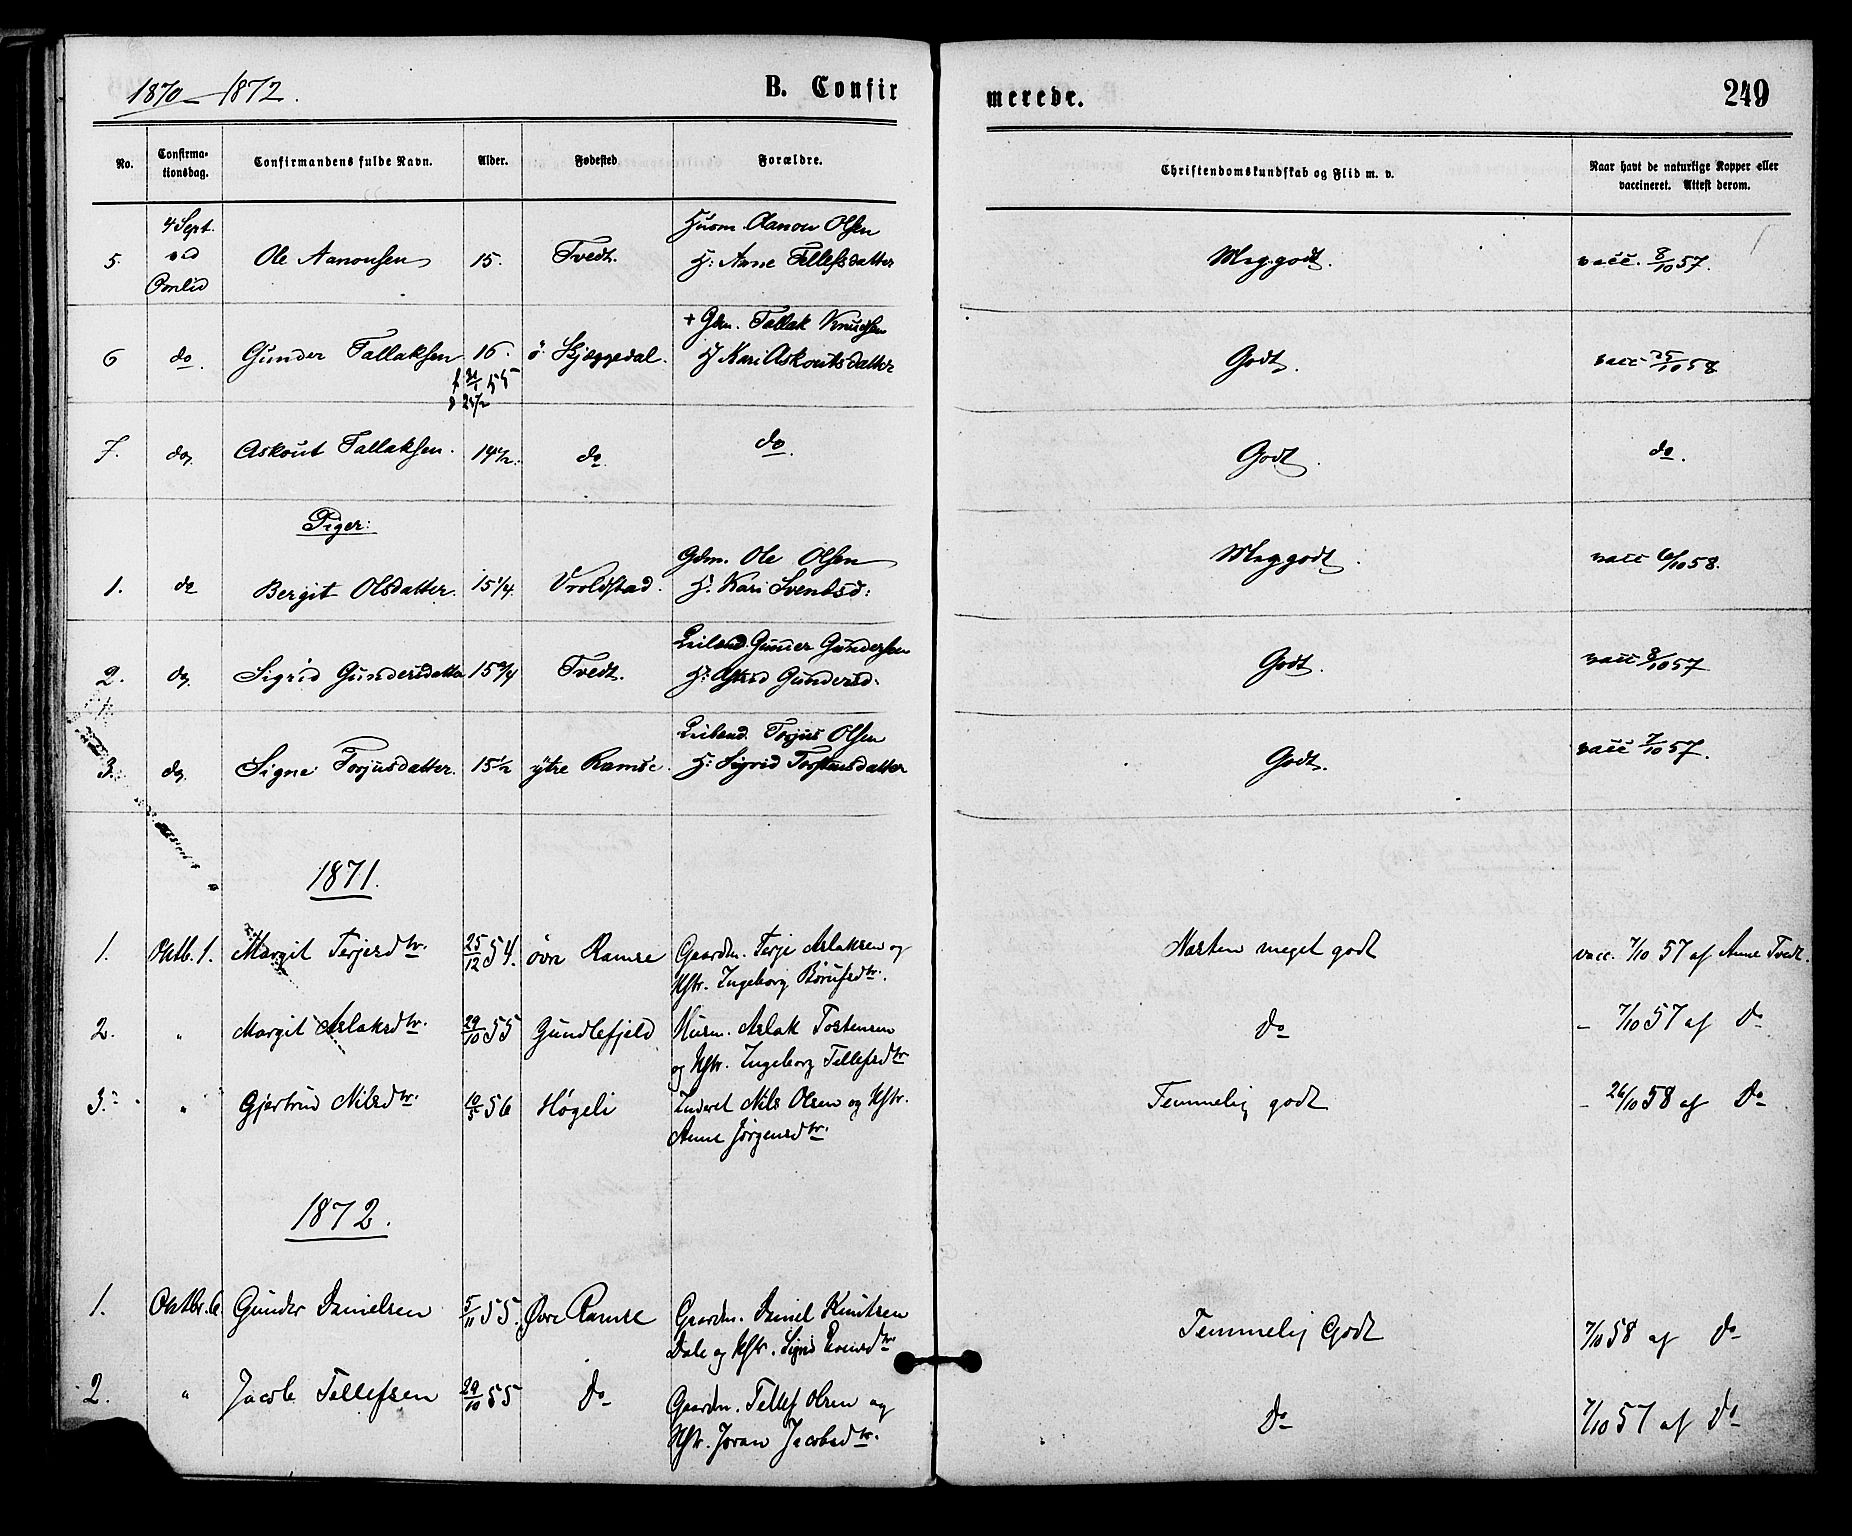 1870-1872.
B. Confirmerede.
249
No.
Confirmationsdag.
Confirmandens fulde Navn.
Alder.
Fødested
Forældre.
Christendomskundskab og Flid m. v.
Naar havt de naturlige Kopper eller
vaccineret. Attest derom.
4 Sept.
ved
Husm. Aanon Olsen
5. Ole Aanonsen 15. Tvedt. H: Anne Tellefsdatter Meg. godt. vacc. 8/10 57.
+ Gdm. Tallak Knudsen
6 do. Gunder Tallaksen 16. ö. Skjeggedal. H Kari Askoutsdatter Godt. vacc 25/10 58
7. do. Askout Tallaksen. 14 1/2. do do. Godt. do.
Piger:
Gdm. Ole Olsen
1. do Bergit Olsdatter. 15 1/4. Vroldstad. H. Kari Svenbsd: Meg godt. vacc 6/10 58.
Leilænd. Gunder Gundersen
2. do. Sigrid Gundersdatter 15 3/4 Tvedt. H: Gundersd. Godt. vacc 8/10 57
Leilænd. Torjus Olsen
3. do. Signe Torjusdatter. 15 1/2 ytre Ramse. H: Sigrid Torstensdatter Godt. vacc 7/10 57.
1871.
1. Oktb. 1. Margit Terjesdtr. 25/12 54. övre Ramse Gaardm. Terje Aslaksen og Næsten meget godt vacc. 7/10 57 af Anne Tvedt.
Hstr. Ingeborg
2. " Margit Aslaksdtr. 29/10 55 Gundlefjeld Husm. Aslak Tostensen Do - 7/10 57 af Do
og Hstr. Ingeborg Tellefsdtr
3. " Gjertrud Nilsdtr. 10/5 56 Høgeli Inderst Nils Olsen og Hstr. Temmelig godt - 26/10 58 af Do
Anne Jörgensdtr.
1872.
1. Oktbr. 6. Gunder Danielsen 5/11 55. Øvre Ramse Gaardm. Daniel Knutsen Temmelig Godt 7/10 58 af Do
Dale og Hstr. Sigrid
2. " Jacob Tellefsen 29/10 55 Do Gaardm. Tellef Olsen og Do 7/10 57 af Do
Hstr. Joran Jacobsdtr.